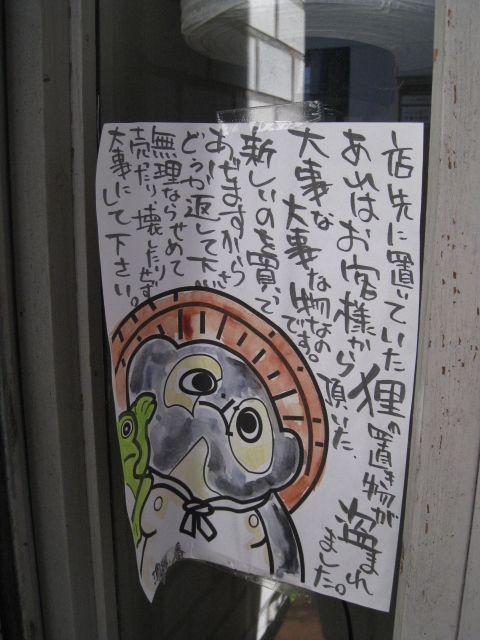 店先に置いていた狸の置き物が盗まれました。
あれはお客様から頂いた
大事な大事な物なのです。
新しいのを買って
あげますから
どうか返して下さい
無理ならせめて
売ったり、壊したりせず
大事にして下さい。